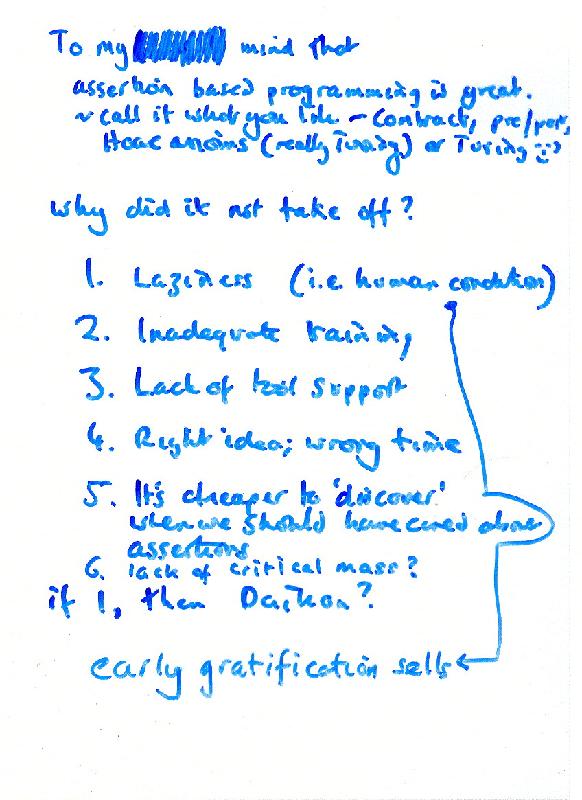 To my mind that
assertion based programming is great.
~ call it what you like - Contracts, pre/post,
Hoare axioms (really Turing) or Turing :)
Why did it not take off?
1. Laziness (i.e. human condition)
2. Inadequate training
3. Lack of tool support
4. Right idea; wrong time
5. It's cheaper to 'discover'
when we should have cared about
assertions
6. lack of critical mass?
if 1, then Daikon?
early gratification sells